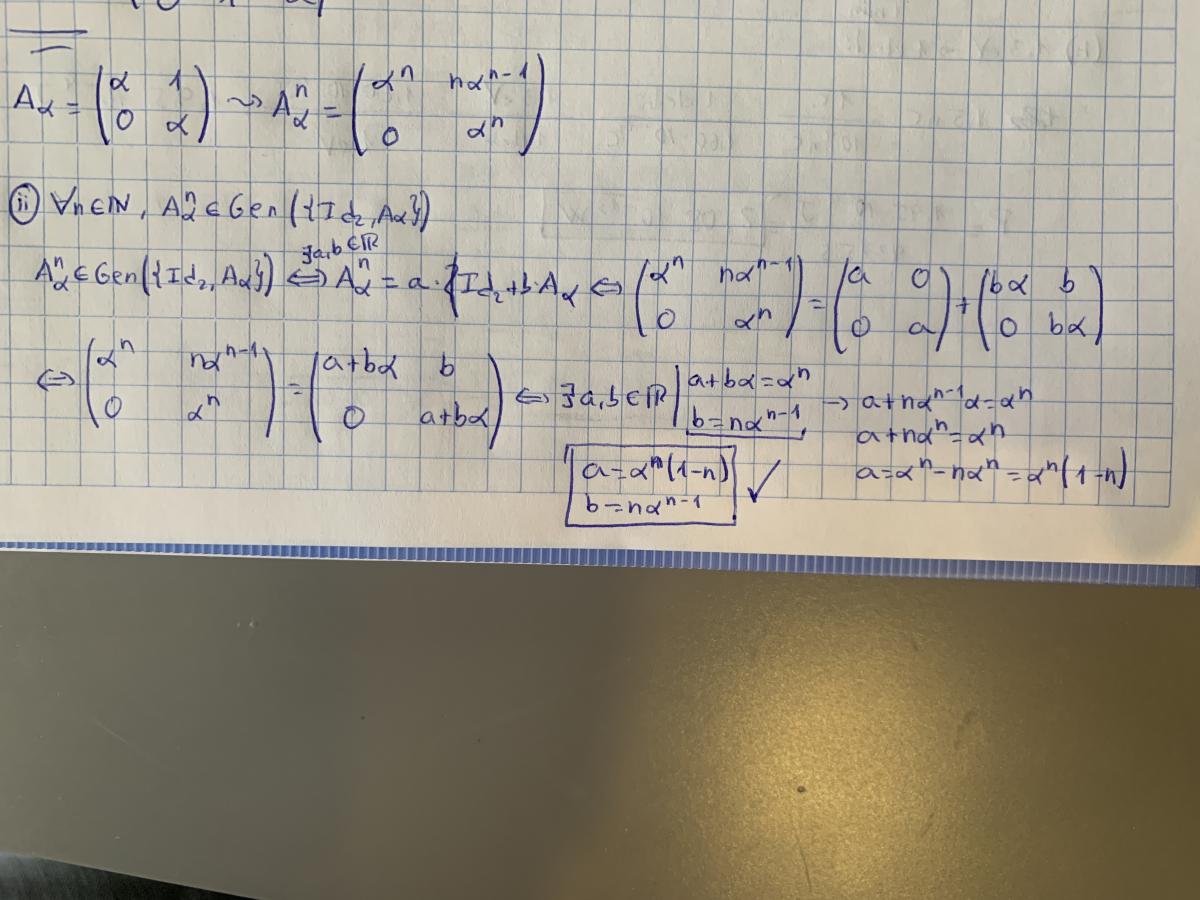 Aα = (α 1 0 α) ⇝ Aαⁿ = (αⁿ nαⁿ⁻¹ 0 αⁿ)
ii) ∀n∈ℕ, Aαⁿ ∈ Gen({Id₂, Aα})
Aαⁿ ∈ Gen({Id₂, Aα}) ⇔ ∃a,b∈ℝ Aαⁿ = a·Id₂+b·Aα ⇔ (αⁿ nαⁿ⁻¹ 0 αⁿ) = (a 0 0 a) + (bα b 0 bα)
⇔ (αⁿ nαⁿ⁻¹ 0 αⁿ) = (a+bα b 0 a+bα) ⇔ ∃a,b∈ℝ | a+bα=αⁿ b=nαⁿ⁻¹ → a+nαⁿ⁻¹α=αⁿ
a+nαⁿ=αⁿ
a=αⁿ-nαⁿ=αⁿ(1-n)
a=αⁿ(1-n)
b=nαⁿ⁻¹ ✓